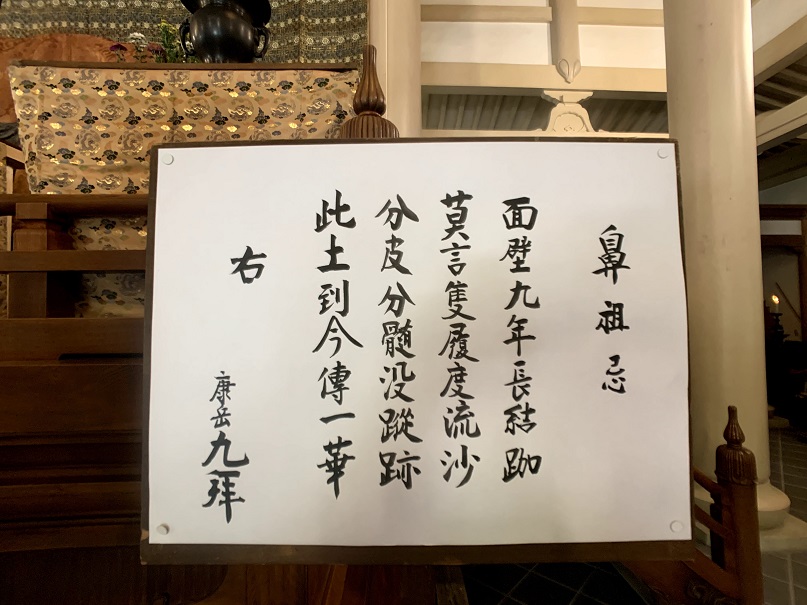 鼻祖忌
面壁九年長結跏
莫言隻履度流沙
分皮分髄没蹤跡
此土到今傳一華
右
康岳九拜